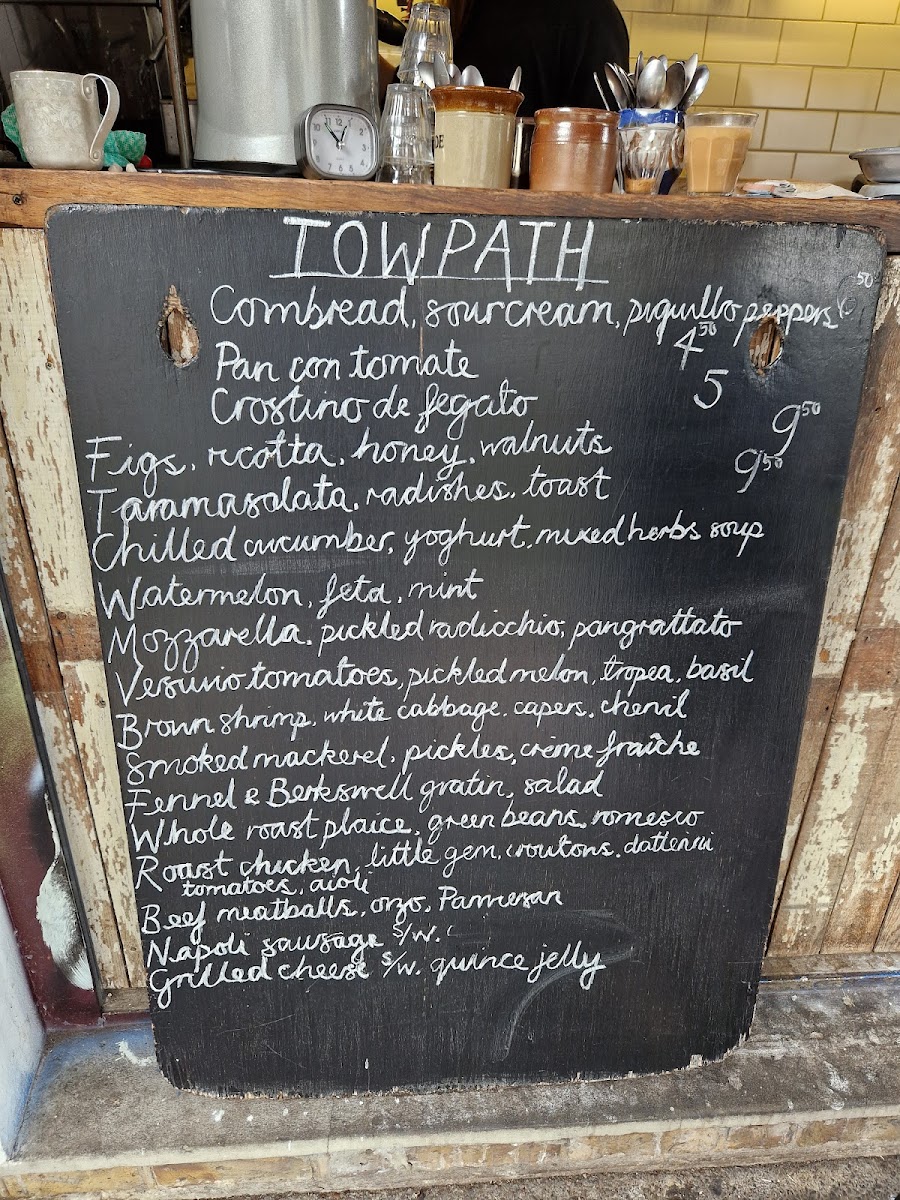 TOWPATH
Cornbread, sour cream, piquillo peppers 6 50
Pan con tomate 4 50
Crostino de fegato 5
Figs, ricotta, honey, walnuts 9 50
Taramasalata, radishes, toast 9 50
Chilled cucumber, yoghurt, mixed herbs soup
Watermelon, feta, mint
Mozzarella, pickled radicchio, pangrattato
Vesuvio tomatoes, pickled melon, tropea, basil
Brown shrimp, white cabbage, capers, chervil
Smoked mackerel, pickles, crème fraîche
Fennel & Berkswell gratin, salad
Whole roast plaice, green beans, romesco
Roast chicken, little gem, croutons, datterini
tomatoes, aioli
Beef meatballs, orzo, Parmesan
Napoli sausage s/w.
Grilled cheese s/w. quince jelly